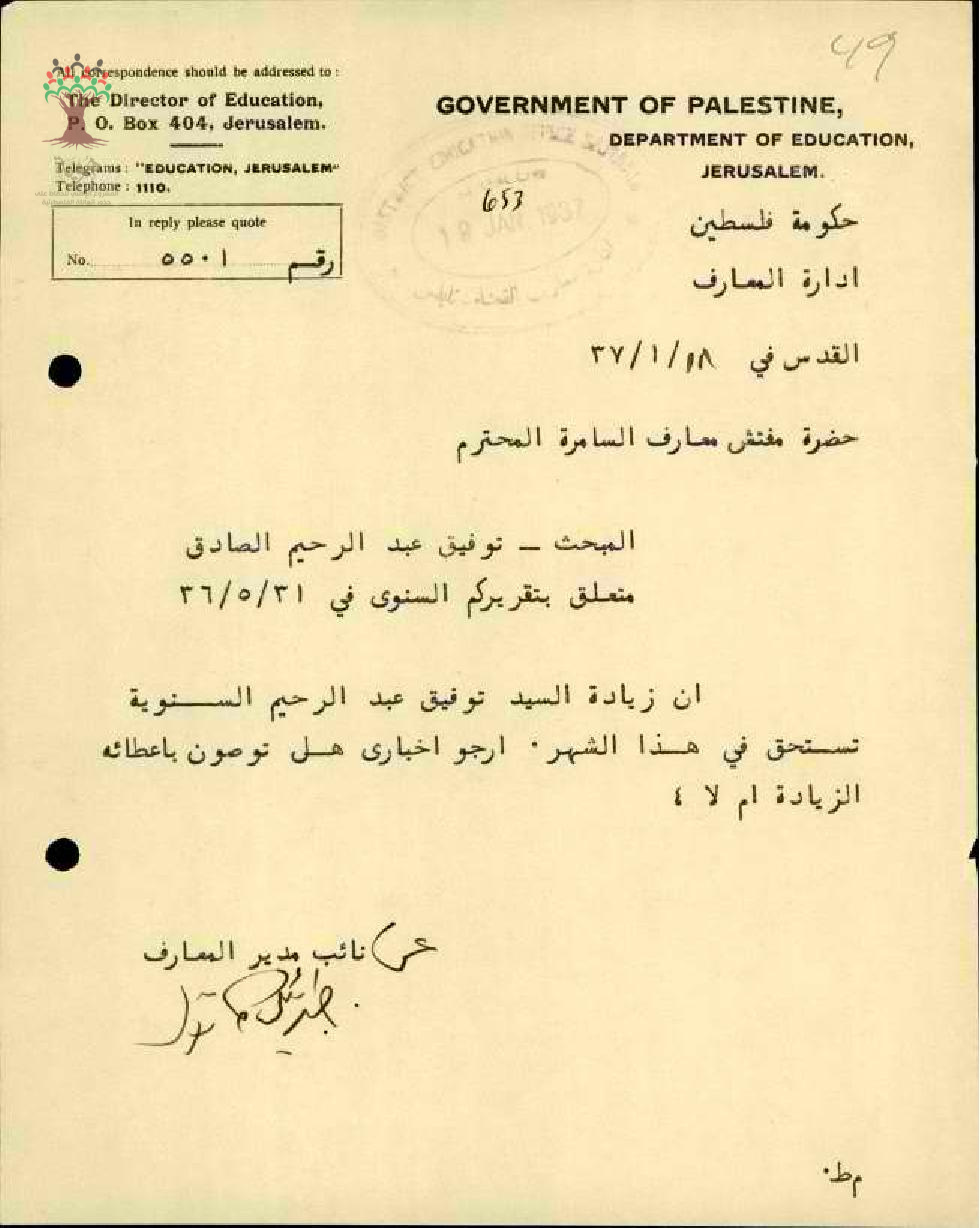 49
All correspondence should be addressed to :
The Director of Education,
P. O. Box 404, Jerusalem.
Telegrams : "EDUCATION, JERUSALEM"
Telephone : 1110.
In reply please quote
No. ٥٥٠١ رقم
GOVERNMENT OF PALESTINE,
DEPARTMENT OF EDUCATION,
JERUSALEM.
653
18 JAN 1937
حكومة فلسطين
ادارة المعارف
القدس في ١٨/١/٣٧
حضرة مفتش معارف السامرة المحترم
المبحث – توفيق عبد الرحيم الصادق
متعلق بتقريركم السنوى في ٣٦/٥/٣١
ان زيادة السيد توفيق عبد الرحيم الســنوية
تســتحق في هــذا الشهر٠ ارجو اخبارى هــل توصون باعطائه
الزيادة ام لا ؟
عن نائب مدير المعارف
م ط٠